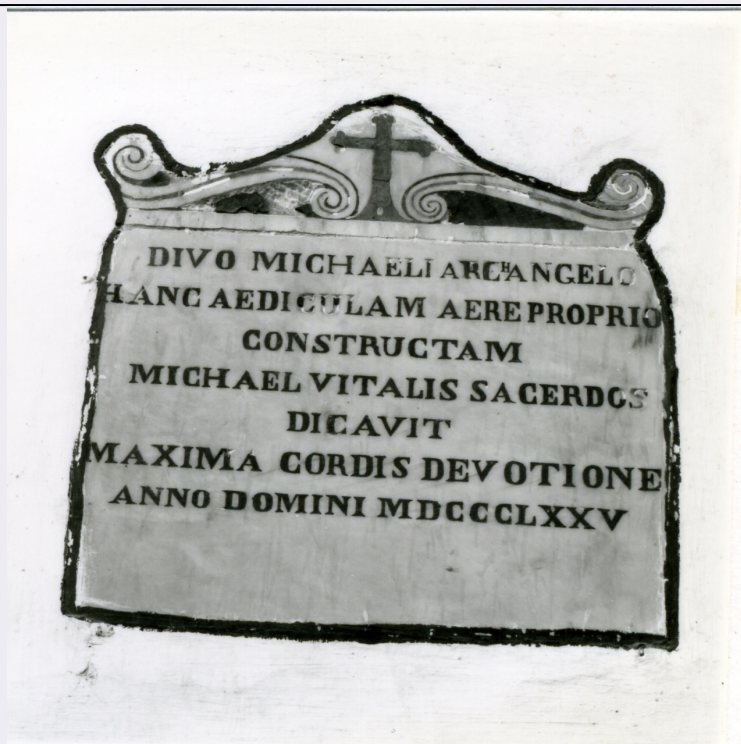 DIVO MICHAELI ARCHANGELO
HANC AEDICULAM AERE PROPRIO
CONSTRUCTAM
MICHAEL VITALIS SACERDOS
DICAVIT
MAXIMA CORDIS DEVOTIONE
ANNO DOMINI MDCCCLXXV